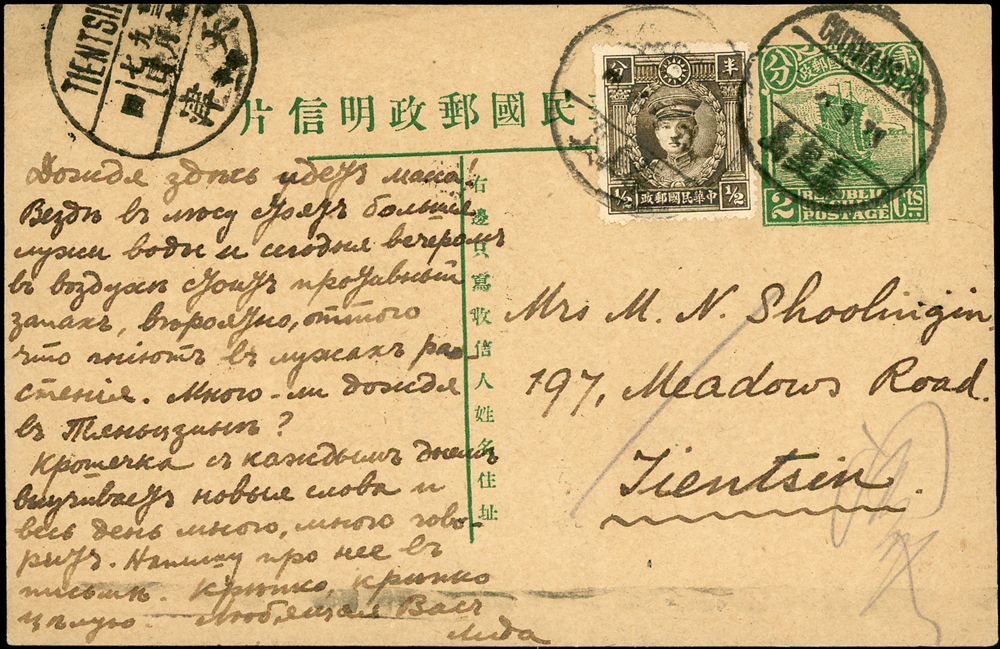 TIENTSIN
天津
片信明政郵國民
分 半
1/2 1/2
政郵國民華中
分 貳
政郵國民
2 REPUBLIC OF CHINA Cts
POSTAGE
右邊只寫收信人姓名住址
Дождя здѣсь идетъ мало!
Вездѣ въ лѣсу стоятъ большіе
лужи воды и сегодня вечеромъ
въ воздухѣ стоитъ противный
запахъ, вѣроятно, оттого
что гніютъ въ лужахъ ра
стенія. Много-ли дождя
въ Тяньцзинѣ?
Крошечка съ каждымъ днемъ
выучиваетъ новыя слова и
весь день много, много гово-
ритъ. Напишу про нее въ
письмѣ. Крѣпко, крѣпко
цѣлую. Любящая Васъ
Лида
Mrs M. N. Shoolingin.
197, Meadows Road.
Tientsin.